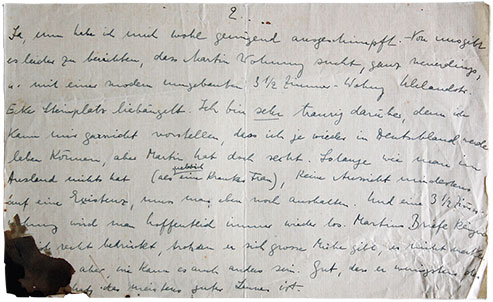 2.
Ja, nun habe ich mich wohl genügend ausgeschimpft. Von uns gibt
es leider zu berichten, dass Martin Wohnung sucht, ganz neuerdings,
u. mit einer modern umgebauten 3 1/2 Zimmer-Wohng Uhlandstr.
Ecke Steinplatz liebäugelt. Ich bin sehr traurig darüber, denn ich
kann mir garnicht vorstellen, dass ich je wieder in Deutschland werde
leben können, aber Martin hat doch recht. Solange wie man im
Ausland nichts hat (als eine kranke Frau), keine Aussicht mindestens
auf eine Existenz, muss man eben noch aushalten. Und eine 3 1/2 Zim.
wird man hoffentlich immer wieder los. Martins Briefe klingen
recht bedrückt, trotzdem er sich grosse Mühe gibt, es nicht merken
aber, wie kann es auch anders sein. Gut, dass er wenigstens
des meistens guter Laune ist.